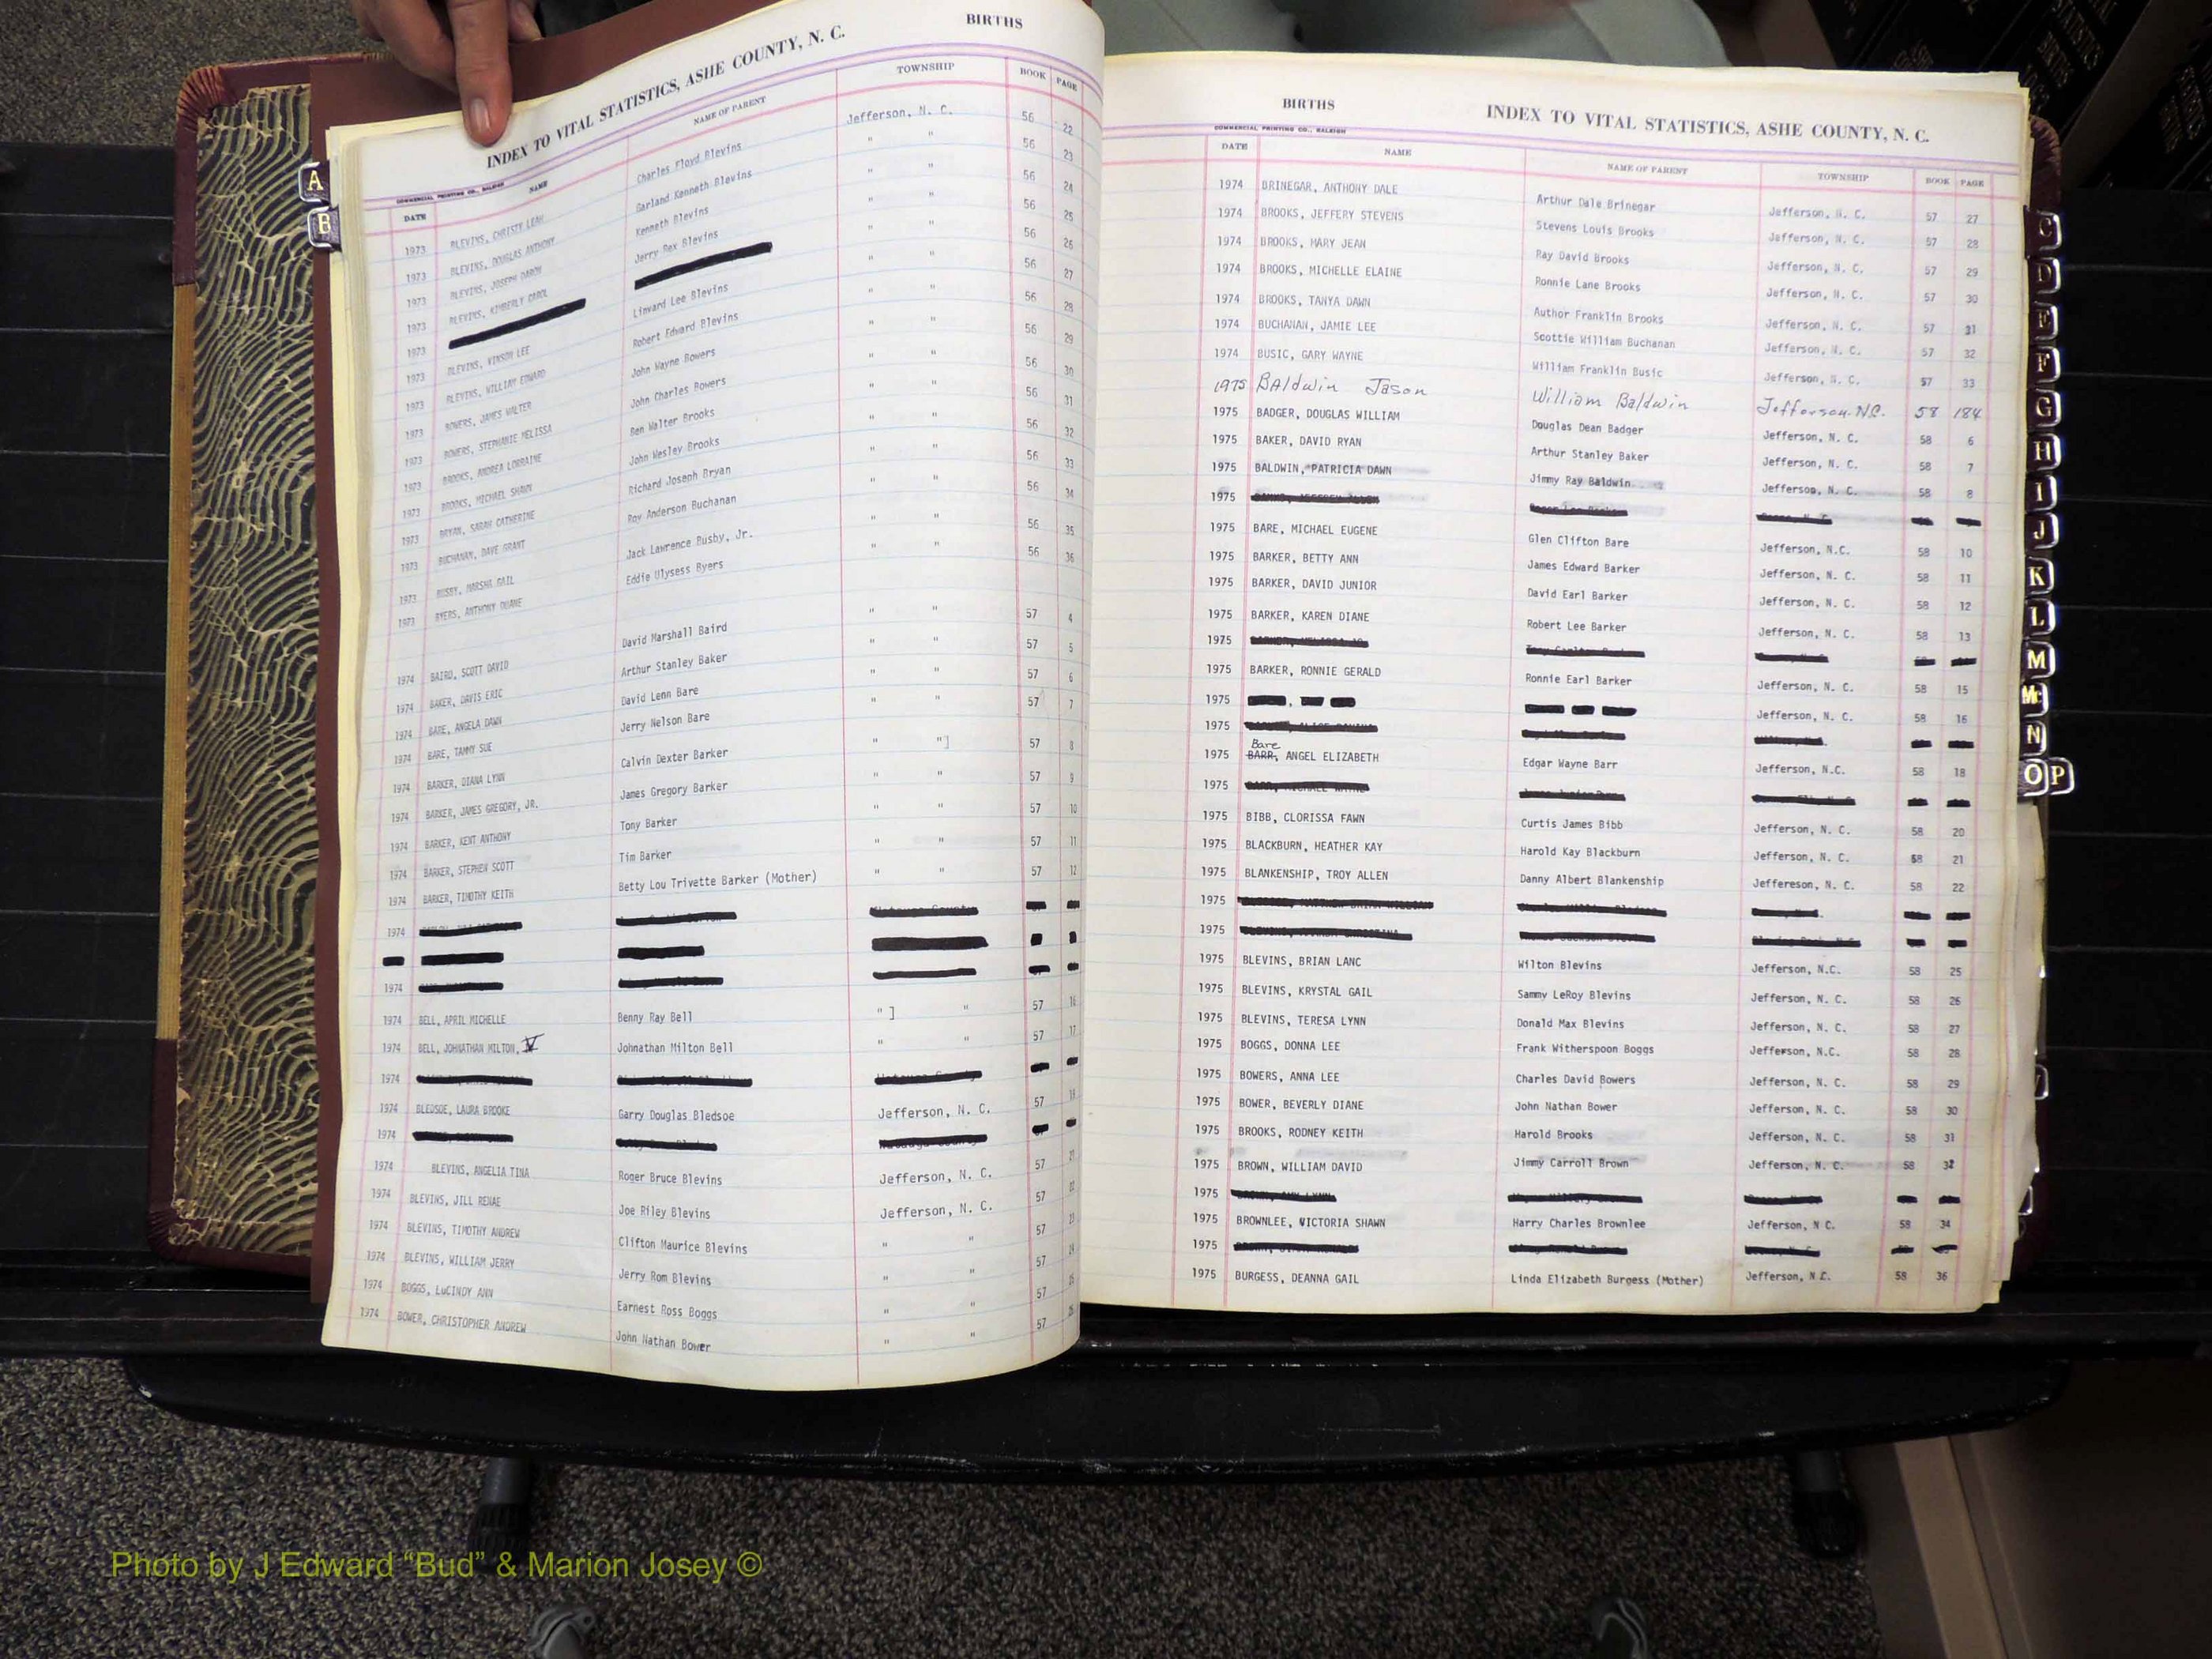 BIRTHS
INDEX TO VITAL STATISTICS, ASHE COUNTY, N. C.
COMMERCIAL PRINTING CO., RALEIGH
DATE NAME NAME OF PARENT TOWNSHIP BOOK PAGE
1973 BLEVINS, CHRISTY LEAH Charles Floyd Blevins Jefferson, N. C. 56 22
1973 BLEVINS, DOUGLAS ANTHONY Garland Kenneth Blevins " " 56 23
1973 BLEVINS, JOSEPH DARON Kenneth Blevins " " 56 24
1973 BLEVINS, KIMBERLY CAROL Jerry Rex Blevins " " 56 25
1973 " " 56 26
1973 BLEVINS, VINSON LEE Linward Lee Blevins " " 56 27
1973 BLEVINS, WILLIAM EDWARD Robert Edward Blevins " " 56 28
1973 BOWERS, JAMES WALTER John Wayne Bowers " " 56 29
1973 BOWERS, STEPHANIE MELISSA John Charles Bowers " " 56 30
1973 BROOKS, ANDREA LORRAINE Ben Walter Brooks " " 56 31
1973 BROOKS, MICHAEL SHAWN John Wesley Brooks " " 56 32
1973 BRYAN, SARAH CATHERINE Richard Joseph Bryan " " 56 33
1973 BUCHANAN, DAVE GRANT Roy Anderson Buchanan " " 56 34
1973 BUSBY, MARSHA GAIL Jack Lawrence Busby, Jr. " " 56 35
1973 BYERS, ANTHONY DUANE Eddie Ulysess Byers " " 56 36
1974 BAIRD, SCOTT DAVID David Marshall Baird " " 57 4
1974 BAKER, DAVIS ERIC Arthur Stanley Baker " " 57 5
1974 BARE, ANGELA DAWN David Lenn Bare " " 57 6
1974 BARE, TAMMY SUE Jerry Nelson Bare " " 57 7
1974 BARKER, DIANA LYNN Calvin Dexter Barker " "] 57 8
1974 BARKER, JAMES GREGORY, JR. James Gregory Barker " " 57 9
1974 BARKER, KENT ANTHONY Tony Barker " " 57 10
1974 BARKER, STEPHEN SCOTT Tim Barker " " 57 11
1974 BARKER, TIMOTHY KEITH Betty Lou Trivette Barker (Mother) " " 57 12
1974
1974
1974 BELL, APRIL MICHELLE Benny Ray Bell "] " 57 16
1974 BELL, JOHNATHAN MILTON, IV Johnathan Milton Bell " " 57 17
1974
1974 BLEDSOE, LAURA BROOKE Garry Douglas Bledsoe Jefferson, N. C. 57
1974
1974 BLEVINS, ANGELIA TINA Roger Bruce Blevins Jefferson, N. C. 57 21
1974 BLEVINS, JILL RENAE Joe Riley Blevins Jefferson, N. C. 57 22
1974 BLEVINS, TIMOTHY ANDREW Clifton Maurice Blevins " " 57 23
1974 BLEVINS, WILLIAM JERRY Jerry Rom Blevins " " 57 24
1974 BOGGS, LuCINDY ANN Earnest Ross Boggs " " 57 25
1974 BOWER, CHRISTOPHER ANDREW John Nathan Bower " " 57 26
BIRTHS
INDEX TO VITAL STATISTICS, ASHE COUNTY, N. C.
COMMERCIAL PRINTING CO., RALEIGH
DATE NAME NAME OF PARENT TOWNSHIP BOOK PAGE
1974 BRINEGAR, ANTHONY DALE Arthur Dale Brinegar Jefferson, N. C. 57 27
1974 BROOKS, JEFFERY STEVENS Stevens Louis Brooks Jefferson, N. C. 57 28
1974 BROOKS, MARY JEAN Ray David Brooks Jefferson, N. C. 57 29
1974 BROOKS, MICHELLE ELAINE Ronnie Lane Brooks Jefferson, N. C. 57 30
1974 BROOKS, TANYA DAWN Author Franklin Brooks Jefferson, N. C. 57 31
1974 BUCHANAN, JAMIE LEE Scottie William Buchanan Jefferson, N. C. 57 32
1974 BUSIC, GARY WAYNE William Franklin Busic Jefferson, N. C. 57 33
1975 BAldwin Jason William Baldwin Jefferson. N.C. 58 184
1975 BADGER, DOUGLAS WILLIAM Douglas Dean Badger Jefferson, N. C. 58 6
1975 BAKER, DAVID RYAN Arthur Stanley Baker Jefferson, N. C. 58 7
1975 BALDWIN, PATRICIA DAWN Jimmy Ray Baldwin Jefferson, N. C. 58 8
1975
1975 BARE, MICHAEL EUGENE Glen Clifton Bare Jefferson, N.C. 58 10
1975 BARKER, BETTY ANN James Edward Barker Jefferson, N. C. 58 11
1975 BARKER, DAVID JUNIOR David Earl Barker Jefferson, N. C. 58 12
1975 BARKER, KAREN DIANE Robert Lee Barker Jefferson, N. C. 58 13
1975
1975 BARKER, RONNIE GERALD Ronnie Earl Barker Jefferson, N. C. 58 15
1975 Jefferson, N. C. 58 16
1975
Bare
1975 BARR, ANGEL ELIZABETH Edgar Wayne Barr Jefferson, N.C. 58 18
1975
1975 BIBB, CLORISSA FAWN Curtis James Bibb Jefferson, N. C. 58 20
1975 BLACKBURN, HEATHER KAY Harold Kay Blackburn Jefferson, N. C. 58 21
1975 BLANKENSHIP, TROY ALLEN Danny Albert Blankenship Jeffereson, N. C. 58 22
1975
1975
1975 BLEVINS, BRIAN LANC Wilton Blevins Jefferson, N.C. 58 25
1975 BLEVINS, KRYSTAL GAIL Sammy LeRoy Blevins Jefferson, N. C. 58 26
1975 BLEVINS, TERESA LYNN Donald Max Blevins Jefferson, N. C. 58 27
1975 BOGGS, DONNA LEE Frank Witherspoon Boggs Jefferson, N.C. 58 28
1975 BOWERS, ANNA LEE Charles David Bowers Jefferson, N. C. 58 29
1975 BOWER, BEVERLY DIANE John Nathan Bower Jefferson, N. C. 58 30
1975 BROOKS, RODNEY KEITH Harold Brooks Jefferson, N. C. 58 31
1975 BROWN, WILLIAM DAVID Jimmy Carroll Brown Jefferson, N. C. 58 32
1975
1975 BROWNLEE, VICTORIA SHAWN Harry Charles Brownlee Jefferson, N C. 58 34
1975
1975 BURGESS, DEANNA GAIL Linda Elizabeth Burgess (Mother) Jefferson, N.C. 58 36
A
B
C
D
E
F
G
H
I
J
K
L
M
Mc
N
O P
Photo by J Edward “Bud” & Marion Josey ©